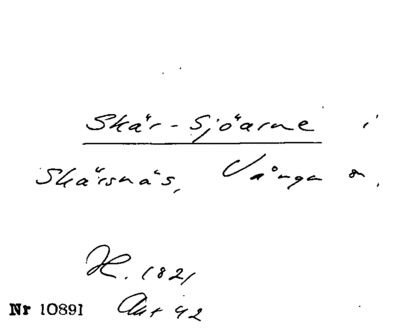 Skär-Sjöarne i
Skärsnäs, Vånga s.
H. 1821
Nr 10891 Akt 42